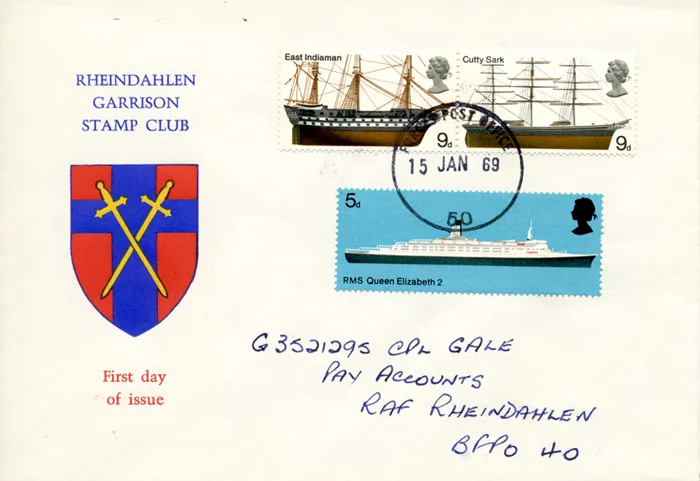 RHEINDAHLEN
GARRISON
STAMP CLUB
East Indiaman
9d
Cutty Sark
9d
POST OFFICE
15 JAN 69
50
5d
RMS Queen Elizabeth 2
G3521295 CPL GALE
PAY ACCOUNTS
RAF RHEINDAHLEN
BFPO 40
First day
of issue